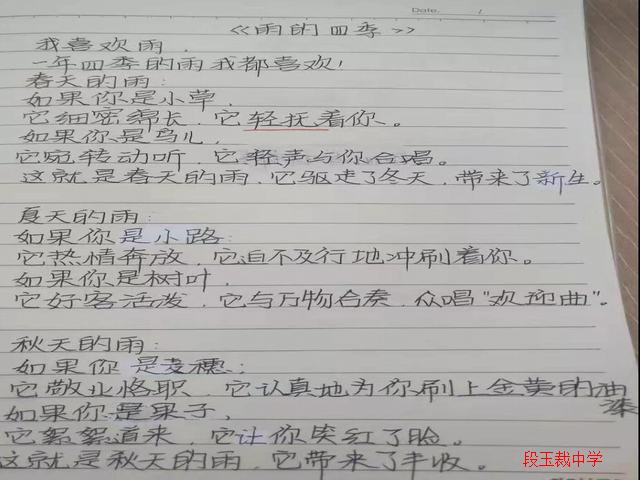 Date. /
《雨的四季》
我喜欢雨，
一年四季的雨我都喜欢！
春天的雨：
如果你是小草，
它细密绵长，它轻抚着你。
如果你是鸟儿，
它宛转动听，它轻声与你合唱。
这就是春天的雨，它驱走了冬天，带来了新生。
夏天的雨：
如果你是小路：
它热情奔放，它迫不及行地冲刷着你。
如果你是树叶，
它好客活泼，它与万物合奏，众唱“欢迎曲”。
秋天的雨：
如果你是麦穗；
它敬业恪职，它认真地为你刷上金黄的油漆
如果你是果子，
它絮絮道来，它让你笑红了脸。
这就是秋天的雨，它带来了丰收。
段玉裁中学